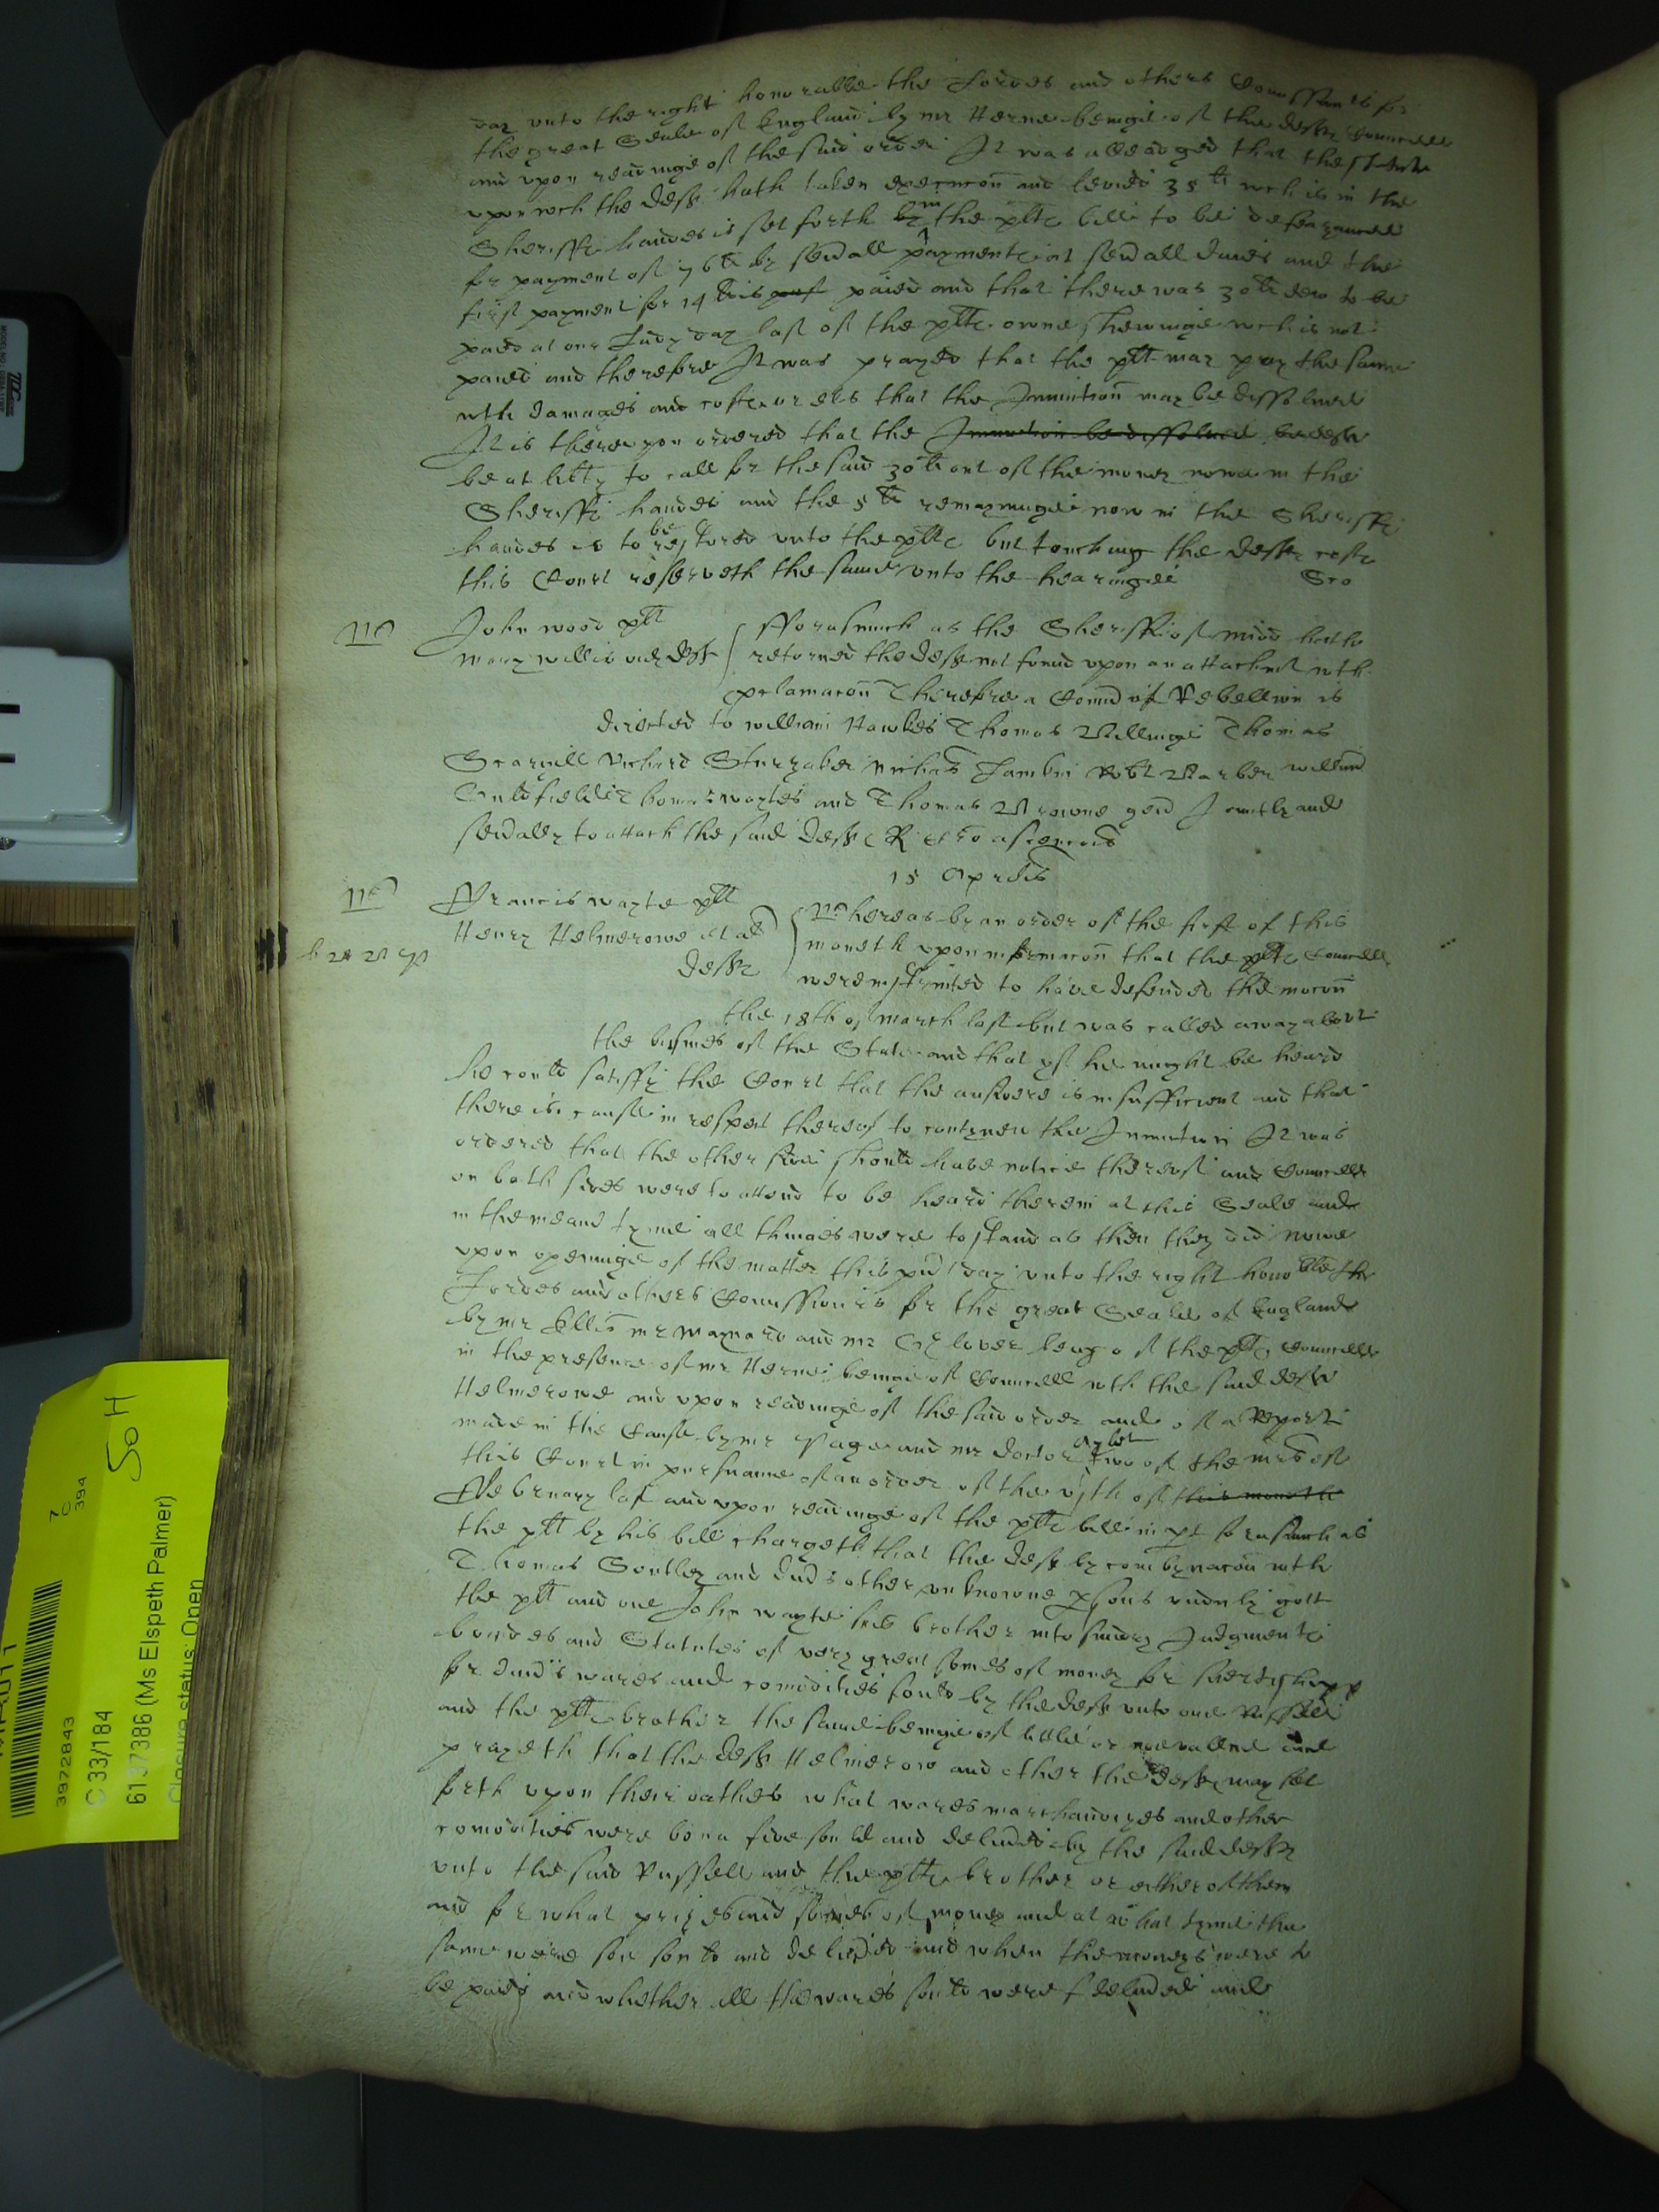 day unto the right honorable the Lordes and others Comissioners for
the great Seale of England by mr Herne beinge of the defts Councell
and upon readinge of the said order It was alleadged that the Statute
upon wch the deft hath taken execucon and levied 35li wch is in the
Sheriffs handes is set forth by in the plts bill to be defeazanced
for payment of 76li by sevall payments at sevall daies and the
first payment for 14li is paied and that there was 30li dew to be
paied at our Lady day last of the plts owne shewinge wch is not
paied and therefore It was prayed that the plt may pay the same
wth damages and costs or els that the Iniunction may be dissolved
It is thereupon ordered that the Iniunction be dissolved deft
be at libty to call for the said 30li out of the money nowe in the
Sheriffs handes and the 5li remayninge now in the Sheriffs
handes is to be restored unto the plts but touching the defts costs
this Court reserveth the same unto the hearinge
John Wood plt
Mary Willis vid deft
fforasmuch as the Sheriffe of Midd hath
retorned the deft not found upon an attachmt wth
proclamacon Therefore a Comd of Rebellion is
directed to William Hawkes Thomas Willinge Thomas
Richard Nichas Lambe Robt Barber William
Thomas Waytes and Thomas Browne gen Ioyntly and
sevally to attach the said deft
15 Aprilis
Francis Wayte plt
Henry Helmerowe et al
defts
Whereas by an order of the first of this
moneth upon informacon that the plts Councell
were instructed to have defended the mocon
the 18th of March last but was called away about
the busines of the State and that yf he might be heard
he could satisfy the Court that the answere is insufficient and that
there is cause in respect thereof to contynew the Iniunction It was
ordered that the other side should have notice thereof and Councell
on both sides were to attend to be heard therein at this Seale and
in the meane tyme all thinges were to stand as then they did Nowe
upon openinge of the matter this pnt day unto the right honoble the
Lordes and others Comissioners for the great Seale of England
by mr Ellis mr Maynard and mr Glover being of the plts Councell
in the presence of mr Herne beinge of Councell wth the said deft
Helmerowe and upon readinge of the said order and of a Report
made in the Cause by mr Page and mr Doctor Aylet two of the mrs of
this Court in pursuance of an order of the vjth of this moneth
February last and upon readinge of the plts bill in pt forasmuch as
the plt by his bill chargeth that the deft by combynacon wth
Thomas Soutley and divs other unknowne psons unduly gott
the plt and one John Wayte his brother into sundry Iudgments
bondes and Statutes of very great somes of money for
for divs wares and comodities sould by the deft unto one Russell
and the plts brother the same beinge of little or noe vallue and
prayeth that the deft Helmerow and other the defts may set
forth upon their oathes what wares marchandizes and other
comodities were bona fide sould and delivered by the said defts
unto the said Russell and the plts brother or either of them
and for what prizes and somes of money and at what tyme the
same were soe sould and delivered and when the moneys were to
be paied and whether all the wares sould were delivered and
3972843
C 33/184
6137386 (Ms Elspeth Palmer)
Closure status: Open
7
C
394
So H